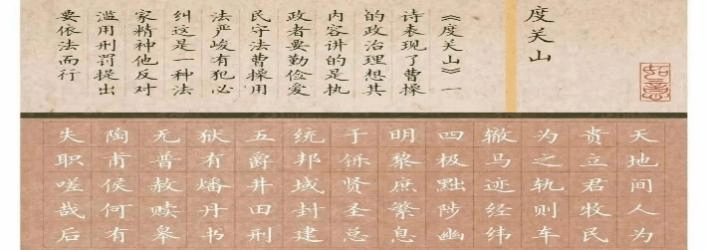 度关山
《度关山》一
诗表现了曹操
的政治理想其
内容讲的是执
政者要勤俭爱
民守法曹操用
法严峻有犯必
纠这是一种法
家精神他反对
滥用刑罚提出
要依法而行
天地间人为
贵立君牧民
为之轨则车
辙马迹经纬
四极黜陟幽
明黎庶繁息
于贤圣总
统邦域封建
五爵井田刑
狱有燔丹书
无普赦赎皋
陶甫侯何有
失职嗟哉后